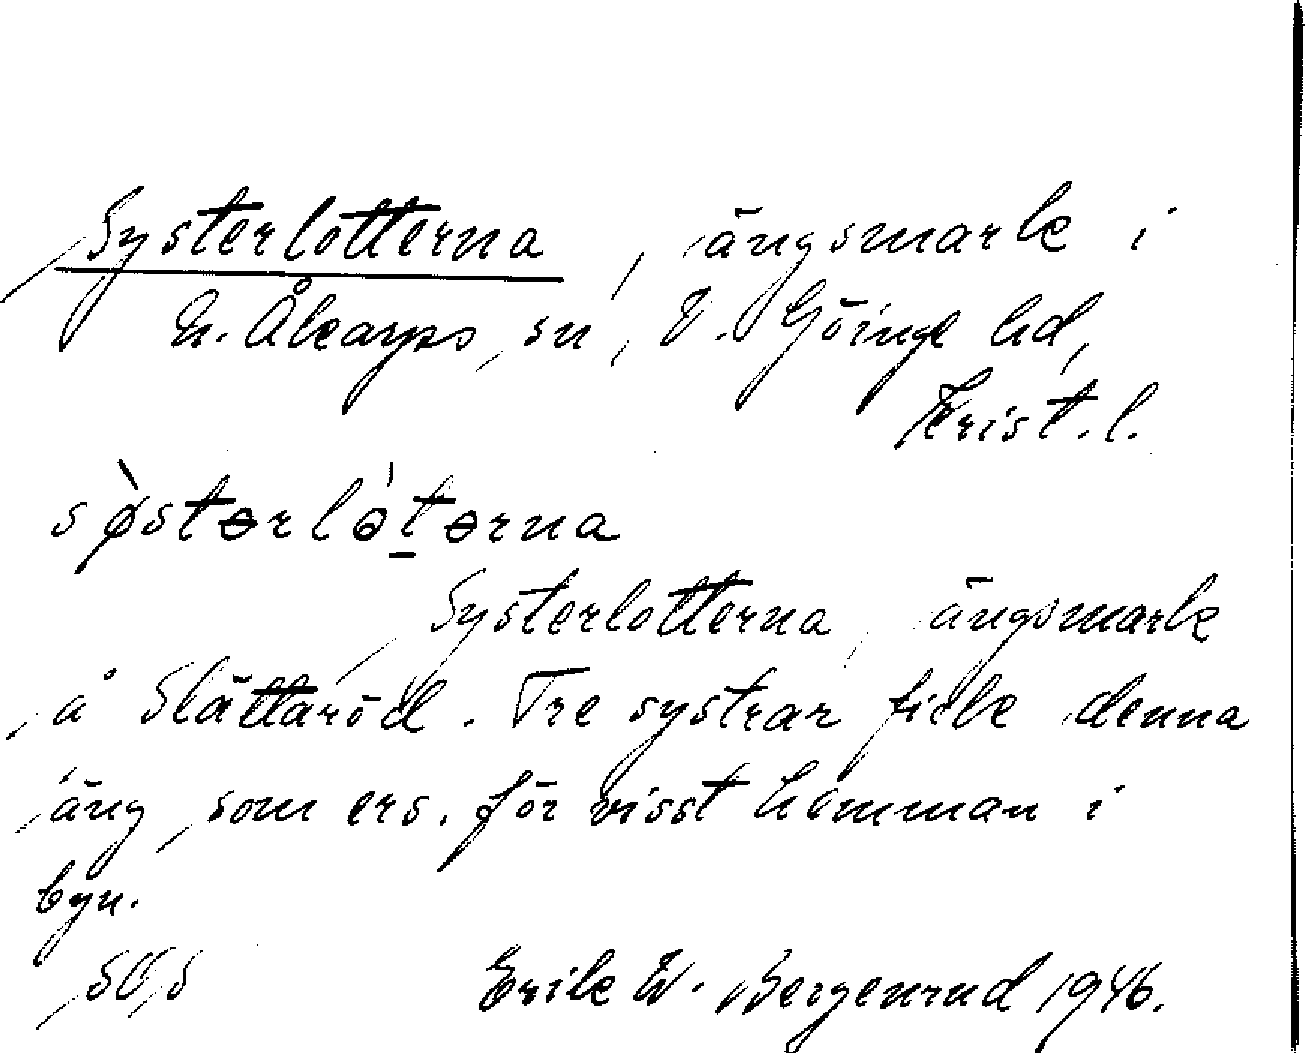 Systerlotterna, ängsmark i
N. Åkarps sn, V. Göinge hd,
Krist. l.
sø̀stərlə́t̠ərna
Systerlotterna, ängsmark
å Slättaröd. Tre systrar fick denna
äng som ers. för visst hemman i
byn.
Erik W. Bergenrud 1946.